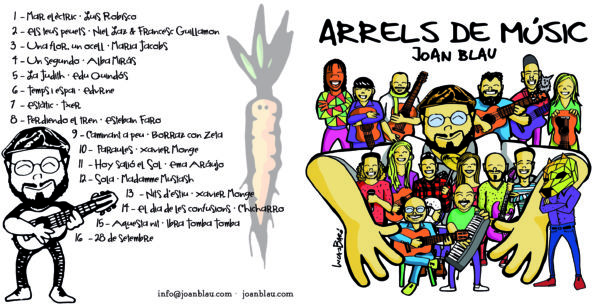 1 - Mar elèctric · Luis Robisco
2 - Els teus peuets · Niel Laz & Francesc Guillamon
3 - Una flor, un ocell · Maria Jacobs
4 - Un segundo · Alba Mirás
5 - La Judith · Edu Guindós
6 - Temps i espai · Edurne
7 - Estàtic · Txer
8 - Perdiendo el tren · Esteban Faro
9 - Caminant a peu · Borraz con Zeta
10 - Paraules · Xavier Monge
11 - Hoy salió el sol · Ema Araújo
12 - Sola · Madamme Mustash
13 - Nits d'estiu · Xavier Monge
14 - El dia de les confusions · Chicharro
15 - Aquesta nit · Ibra Tomba Tomba
16 - 28 de setembre
info@joanblau.com · joanblau.com
ARRELS DE MÚSIC
JOAN BLAU